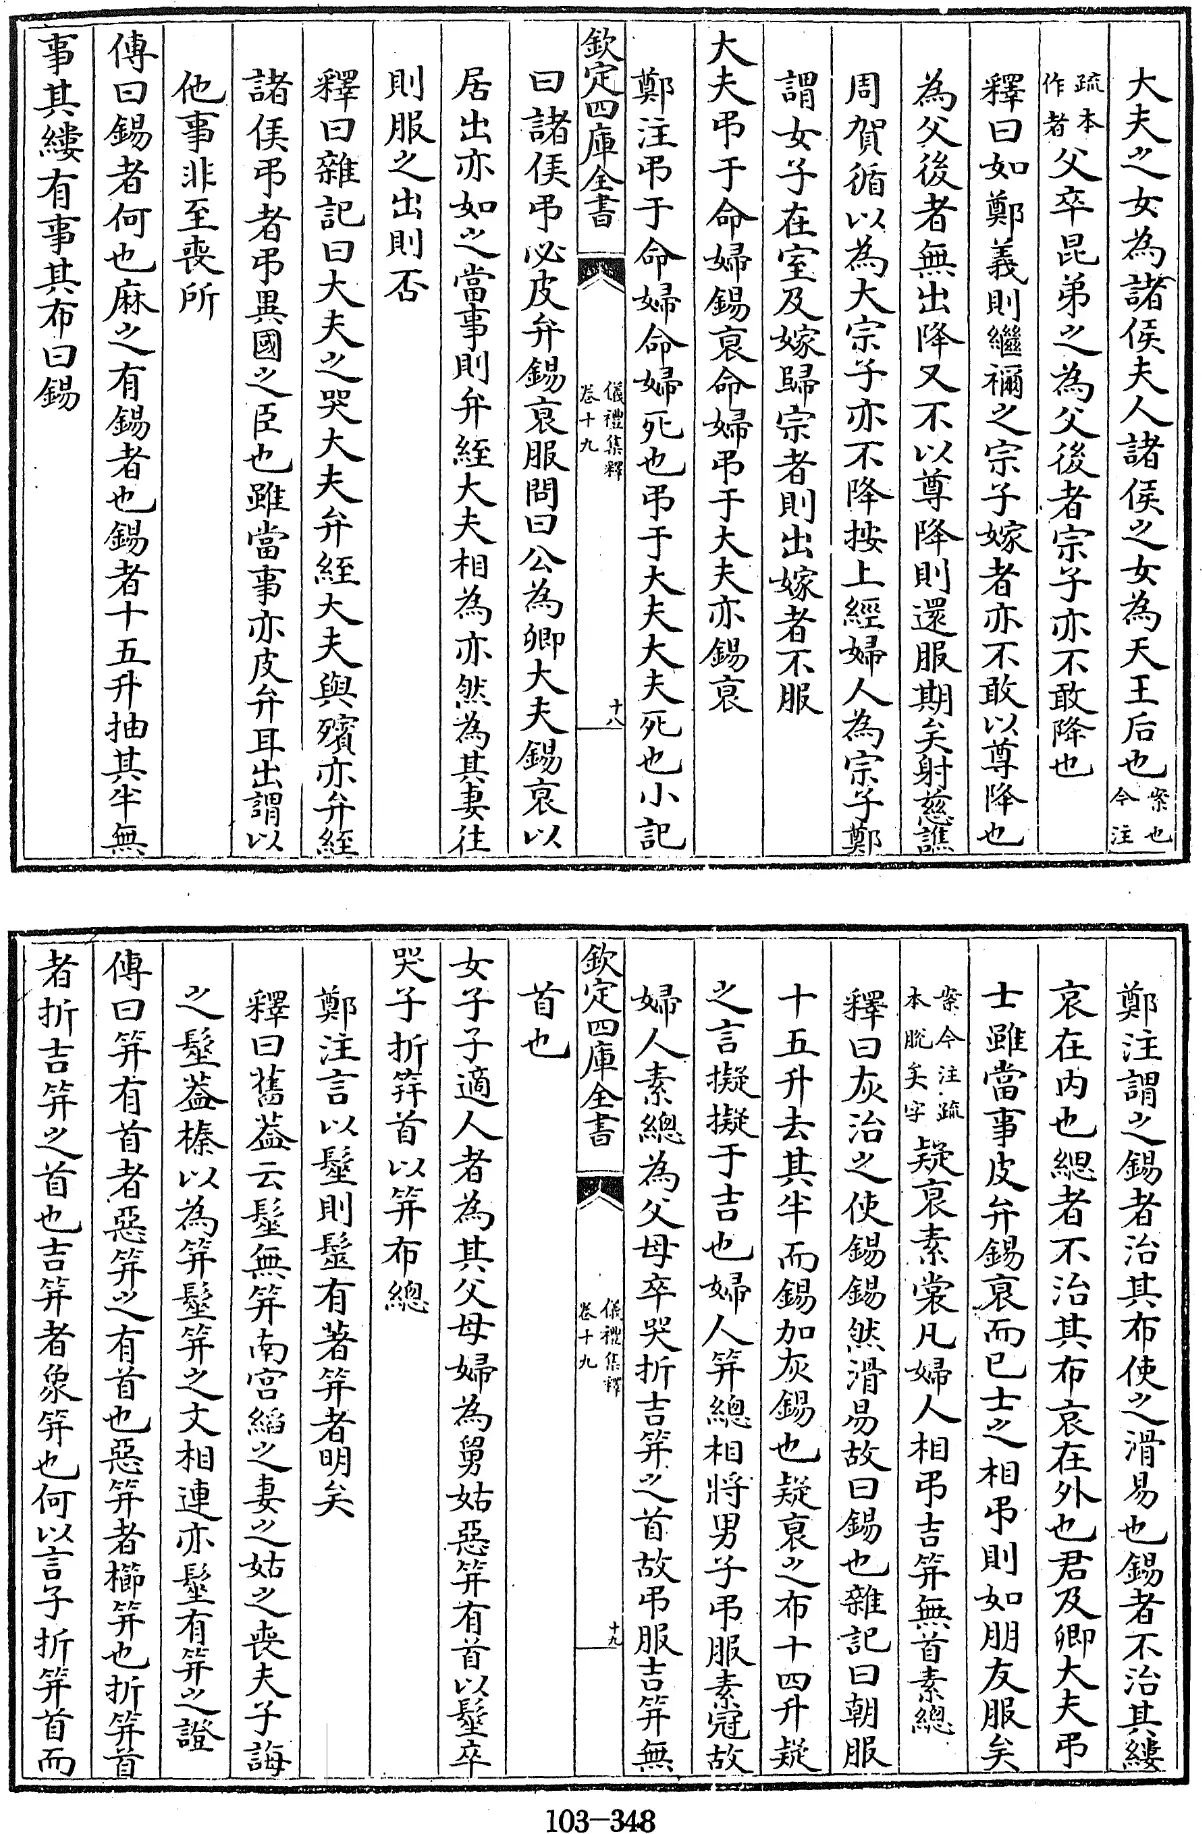 大夫之女為諸侯夫人諸侯之女為天王后也案也今注
疏本作者父卒昆弟之為父後者宗子亦不敢降也
釋曰如鄭義則繼禰之宗子嫁者亦不敢以尊降也
為父後者無出降又不以尊降則還服期矣射慈譙
周賀循以為大宗子亦不降按上經婦人為宗子鄭
謂女子在室及嫁歸宗者則出嫁者不服
大夫弔于命婦錫衰命婦弔于大夫亦錫衰
鄭注弔于命婦命婦死也弔于大夫大夫死也小記
欽定四庫全書
儀禮集釋
卷十九
十八
曰諸侯弔必皮弁錫衰服問曰公為卿大夫錫衰以
居出亦如之當事則弁絰大夫相為亦然為其妻往
則服之出則否
釋曰雜記曰大夫之哭大夫弁絰大夫與殯亦弁絰
諸侯弔者弔異國之臣也雖當事亦皮弁耳出謂以
他事非至喪所
傳曰錫者何也麻之有錫者也錫者十五升抽其半無
事其縷有事其布曰錫
鄭注謂之錫者治其布使之滑易也錫者不治其縷
哀在內也緦者不治其布哀在外也君及卿大夫弔
士雖當事皮弁錫衰而已士之相弔則如朋友服矣
案今注疏本脫矣字疑衰素裳凡婦人相弔吉笄無首素總
釋曰灰治之使錫錫然滑易故曰錫也雜記曰朝服
十五升去其半而錫加灰錫也疑衰之布十四升疑
之言擬擬于吉也婦人笄總相將男子弔服素冠故
婦人素總為父母卒哭折吉笄之首故弔服吉笄無
欽定四庫全書
儀禮集釋
卷十九
十九
首也
女子子適人者為其父母婦為舅姑惡笄有首以髽卒
哭子折笄首以笄布總
鄭注言以髽則髽有著笄者明矣
釋曰舊蓋云髽無笄南宮縚之妻之姑之喪夫子誨
之髽蓋榛以為笄髽笄之文相連亦髽有笄之證
傳曰笄有首者惡笄之有首也惡笄者櫛笄也折笄首
者折吉笄之首也吉笄者象笄也何以言子折笄首而
103-348